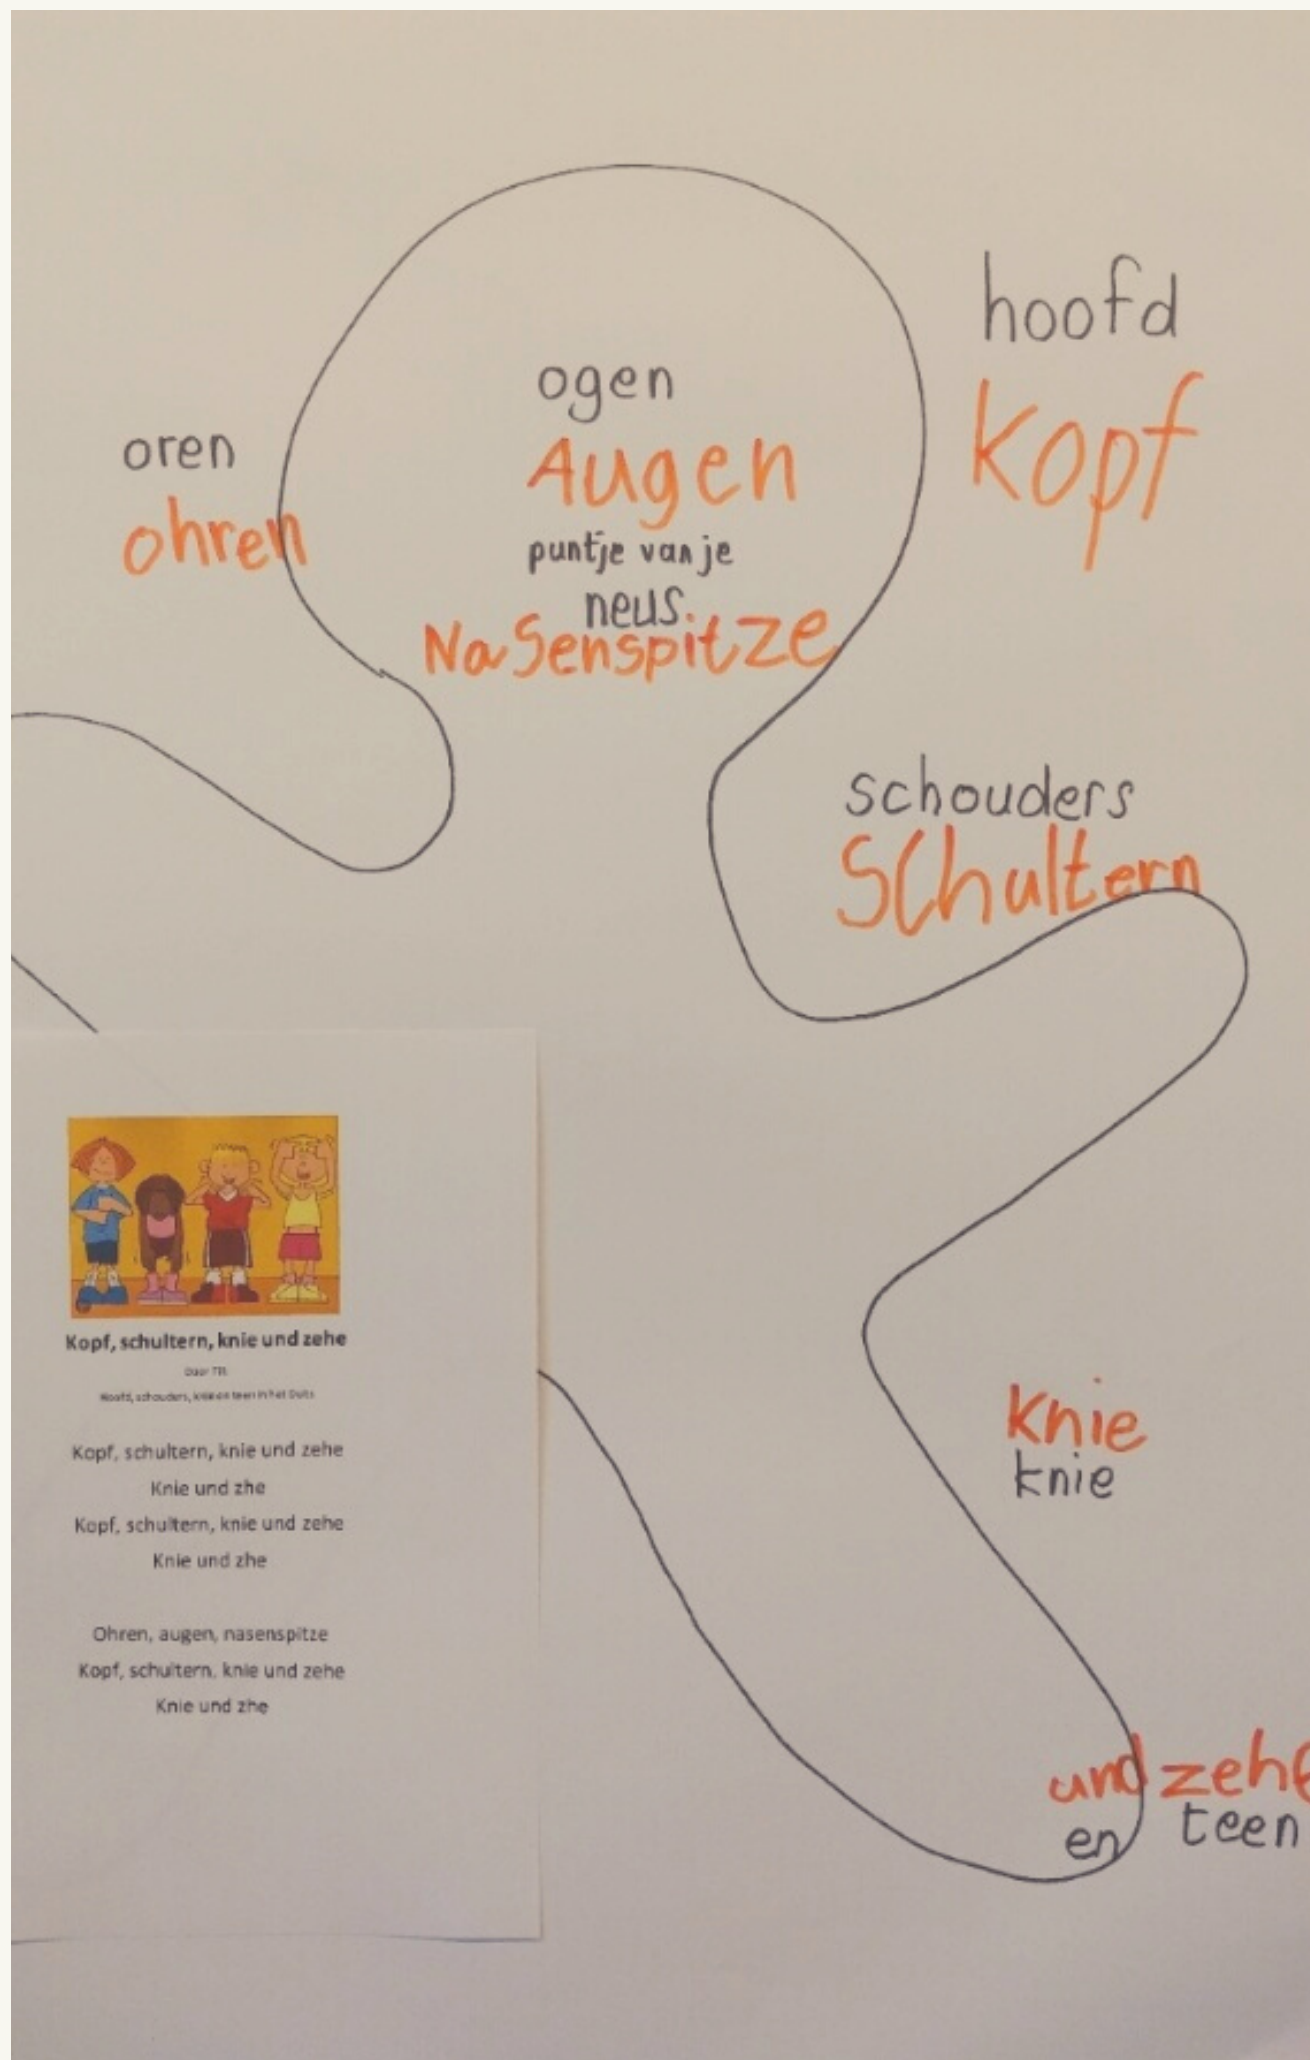 hoofd
Kopf
ogen
Augen
oren
ohren
puntje van je
neus
NaSenspitze
schouders
SChultern
Knie
knie
und zehe
en teen
Kopf, schultern, knie und zehe
Hoofd, schouders, knie en teen in het Duits
Kopf, schultern, knie und zehe
Knie und zhe
Kopf, schultern, knie und zehe
Knie und zhe
Ohren, augen, nasenspitze
Kopf, schultern, knie und zehe
Knie und zhe